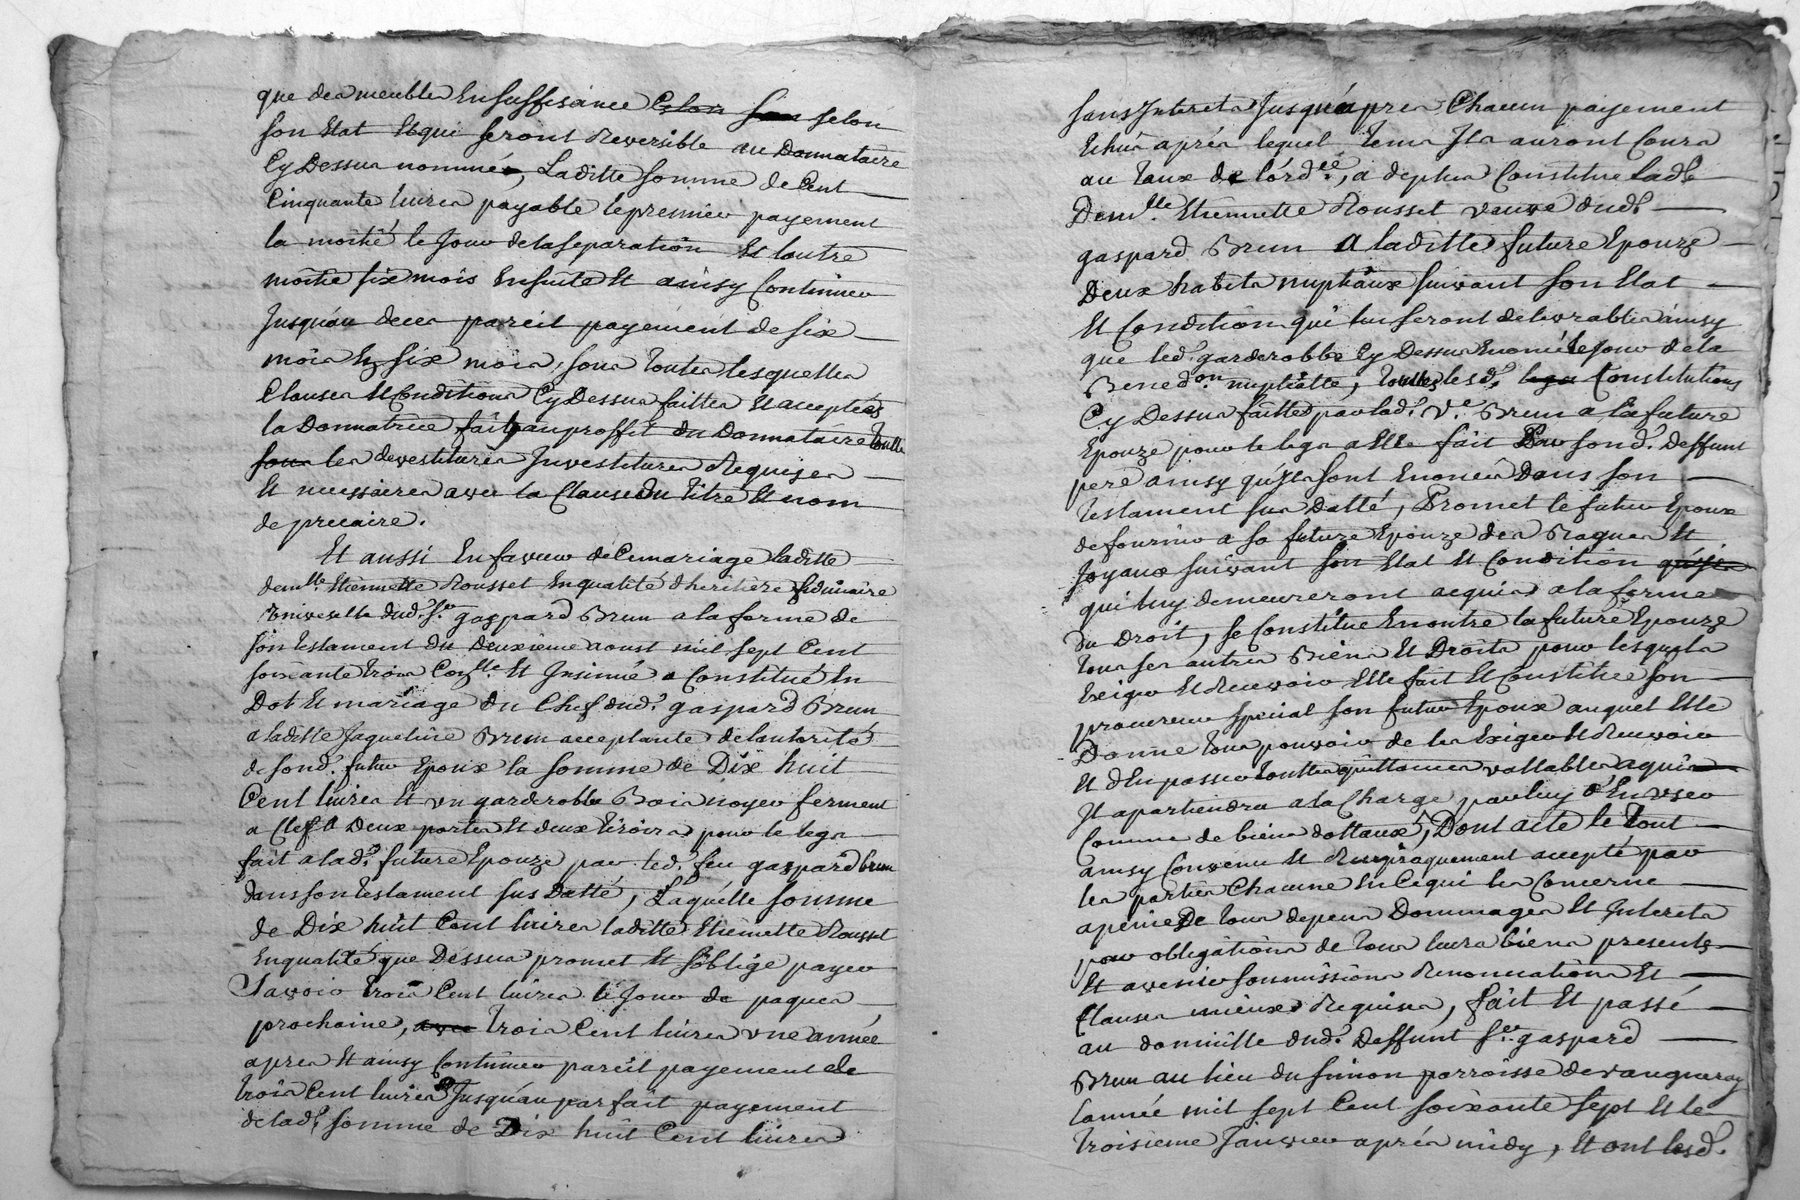 que des meubles En suffisance selon
son Etat Et qui seront Reversible au Donnataire
Cy Dessus nommée, Laditte somme de Cent
Cinquante livres payable le premier payement
la moitié le Jour de la separation Et lautre
moitie six mois Ensuitte Et ainsy Continuer
Jusquau de ces pareil payement de six
mois En six mois, sous toutes lesquelles
Clauses Et Conditions Cy Dessus faittes Et acceptées
la Donnatrice fait au proffit du Donnataire toutte
les devestitures Investitures Requises
Et necessaires avec la Clause du titre Et nom
de precaire.
Et aussi En faveur de Ce mariage laditte
demlle. Etiennette Rousset En qualité d'heritiere fiduciaire
Universelle dud. Sr. gaspard Brun a la forme de
son testament du deuxieme aoust mil sept Cent
soixante trois Et Insinué a Constitué En
Dot Et mariage du Chef dud. gaspard Brun
a laditte Jaqueline Brun acceptante de lautorité
de sond. futur Epoux la somme de Dix huit
Cent livres Et un garderobbe Bois noyer ferment
a Clef a Deux portes Et deux tiroirs, pour le legs
fait a lad. future Epouze par led. feu gaspard brun
dans son testament sus Datté, Laquelle somme
de Dix huit Cent livres laditte Etiennette Rousset
En qualité que Dessus promet Et s'oblige payer
Savoir trois Cent livres le Jour de paques
prochaine, trois Cent livres une année
apres Et ainsy Continuer pareil payement de
trois Cent livres Jusquau parfait payement
de lad. somme de Dix huit Cent livres
sans Interets Jusqu'apres Chacun payement
Echus aprés lequel tems Ils auront Cours
au taux de l'ordce., a deplus Constitue lad.
Demlle. Etiennette Rousset veuve dud.
gaspard Brun a laditte future Epouze
Deux habits nuptiaux suivant son Etat
Et Condition qui luy seront delivrables ainsy
que led. garderobbe Cy Dessus Enoncé le Jour de la
Benedon. nuptialle, touttes lesd. Constitutions
Cy Dessus faittes par lad. Ve. Brun a la future
Epouze pour le legs a Elle fait Par sond. deffunt
pere ainsy qu'Ils sont Enoncés Dans son
testament sus Datté, Promet le futur Epoux
de fournir a sa future Epouze des Bagues Et
Joyaux suivant son Etat Et Condition
qui luy demeureront acquis a la forme
du Droit, se Constitue En outre la future Epouze
tous ses autres Biens Et Droits pour lesquels
Exiger Et Recevoir Elle fait Et Constitue son
procureur special son futur Epoux auquel Elle
Donne tous pouvoir de les Exiger Et Recevoir
Et d'En passer touttes quittances vallables a qui
Il apartiendra a la Charge par luy d'En User
Comme de biens dottaux, Dont acte le tout
ainsy Convenu Et Reciproquement accepté par
les parties Chacune En Ce qui les Concerne
a peine De tous depens Dommages Et Interets
par obligations de tous leurs biens presents
Et avenir soumissions Renonciations Et
Clauses mieux Requises, fait Et passé
au domicille dud. Deffunt Sr. gaspard
Brun au lieu du simon parroisse de vaugneray
lannée mil sept Cent soixante sept Et le
troisieme Janvier aprés midy, Et ont lesd.